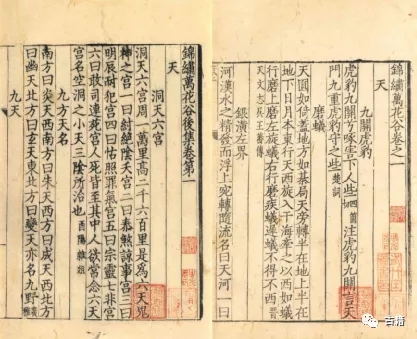 錦繡萬花谷卷之一
天
九關虎豹
虎豹九關啄害下人些注虎豹九關言天
門九重虎豹守之些楚詞
磨蟻
天圓如倚蓋地方如棊局天旁轉半在地上半在
地下日月本東行天西旋入于海牽之以西如蟻
行磨上磨左旋蟻右行磨疾蟻遲蟻不得不西晉
天文志
銀潢左界
河漢水之精發而浮上宛轉隨流名曰天河一曰
錦繡萬花谷後集卷第一
天
洞天六宮
洞天六宮周一萬里高二千六百里是為六天鬼
神之宮一曰紂絕陰天宮二曰泰煞諒事宮三曰
明辰耐犯宮四曰怙照罪氣宮五曰宗靈七非宮
六曰敢司連宛宮人死皆至其中人欲常念六天
宮名空洞之小天三陰所治也酉陽雜俎
九方天名
南方曰炎天西南方曰朱天西方曰成天西北方
曰幽天北方曰玄天東北方曰變天亦名九野廣雅
九天
古籍